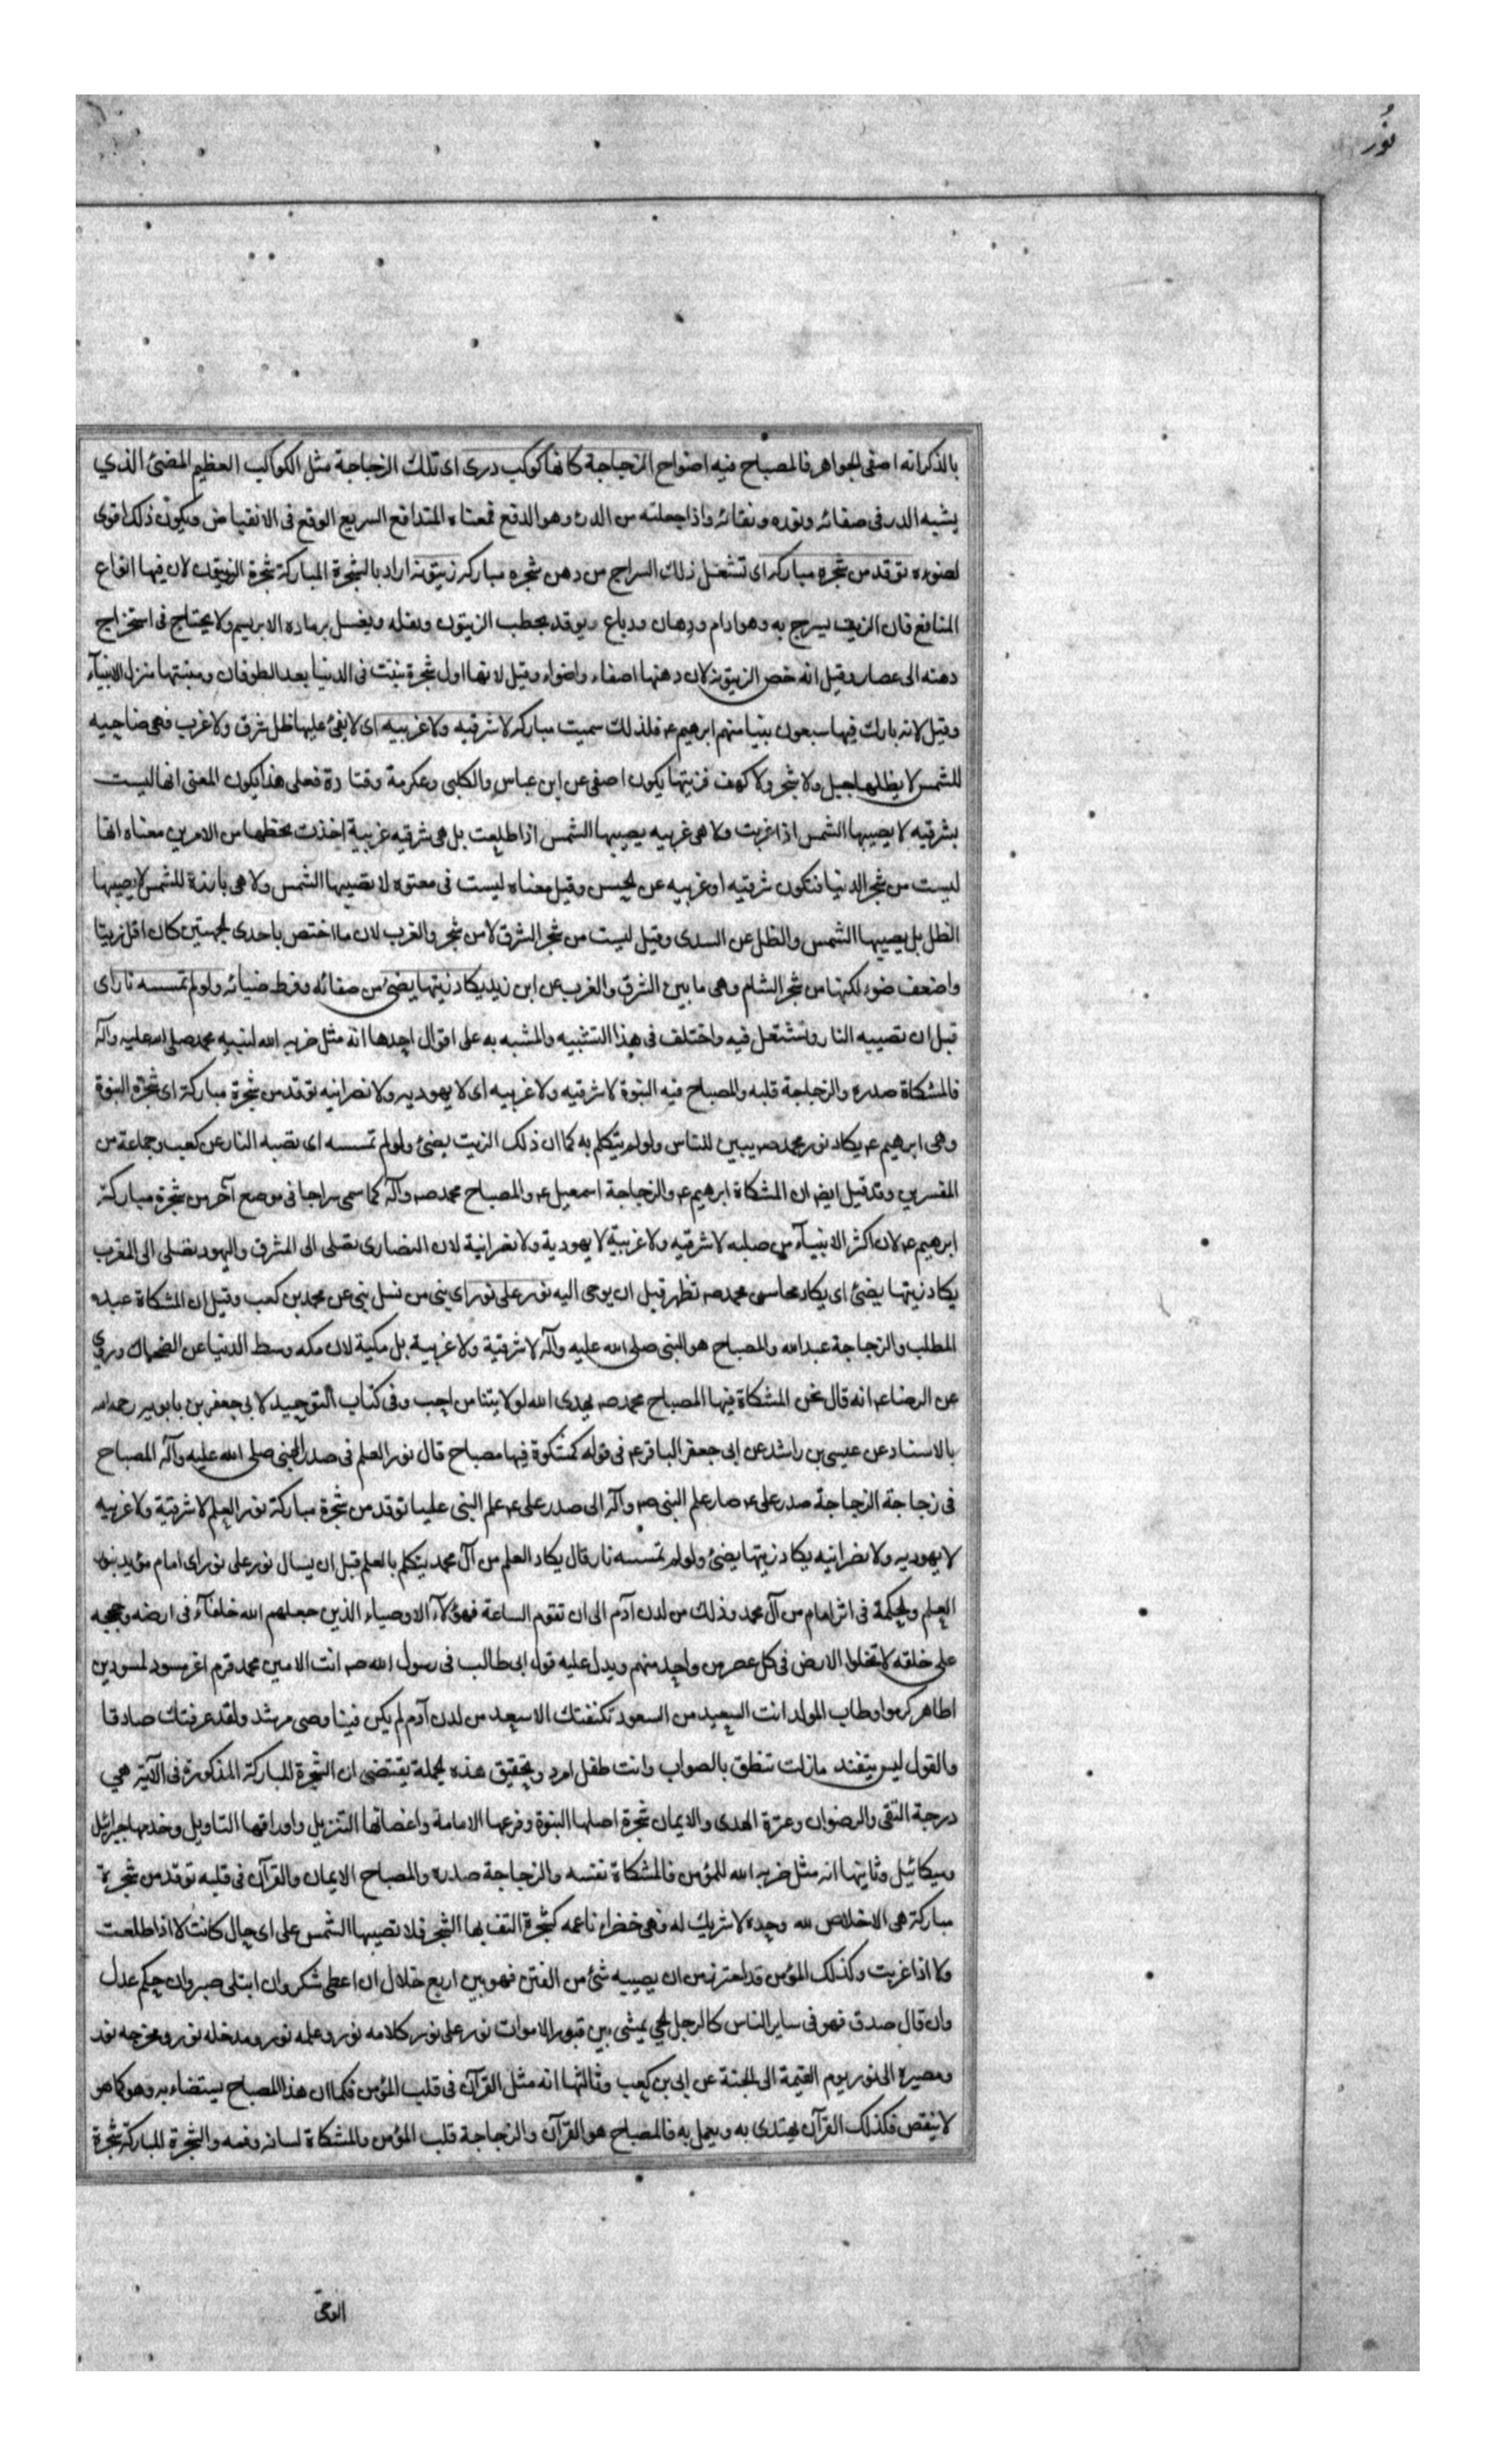 نُور
بالذكر انه اصفى الجواهر فالمصباح فيه اضواح الزجاجة كانها كوكب درى اى تلك الزجاجة مثل الكوكب العظيم المضئ الذي
يشبه الدر فى صفائه ونوره ونقائه واذا جعلته من الدرء وهو الدفع فمعناه المتدافع السريع الوقع فى الانقضاض ويكون ذلك اقوى
لضوءه توقد من شجره مباركه اى تشتعل ذلك السراج من دهن شجره مباركه زيتونه اراد بالشجرة المباركة شجرة الزيتون لان فيها انواع
المنافع فان الزيت يسرج به وهو ادام ودهان ودباغ ويوقد بحطب الزيتون وبفله ويغسل برماده الابريسم ولا يحتاج فى استخراج
دهنه الى عصار وقيل انه خص الزيتونه لان دهنها اصفاء واضواء وقيل لانها اول شجرة نبتت فى الدنيا بعد الطوفان ومنبتها منزل الانبيآء
وقيل لانه بارك فيها سبعون نبيا منهم ابرهيم ع فلذلك سميت مباركه لا شرقيه ولا غربيه اى لا يفئ عليها ظل شرق ولا غرب فهى ضاحيه
للشمس لا يظلها جبل ولا شجر ولا كهف فزيتها يكون اصفى عن ابن عباس والكلبى وعكرمة وقتادة فعلى هذا يكون المعنى انها ليست
بشرقيه لا يصيبها الشمس اذا غربت ولا هى غربيه يصيبها الشمس اذا طلعت بل هى شرقيه غربية اخذت بحظها من الامرين معناه انها
ليست من شجر الدنيا فتكون شرقيه او غربيه عن الحسن وقيل معناه ليست فى مقنوه لا تصيبها الشمس ولا هى بارزة للشمس لا يصيبها
الظل بل يصيبها الشمس والظل عن السدى وقيل ليست من شجر الشرق لا من شجر والغرب لان ما اختص باحدى الجهتين كان اقل زيتا
واضعف ضوء لكنها من شجر الشام وهى ما بين الشرق والغرب عن ابن زيد يكاد زيتها يضئ من صفائه وفرط ضيائه ولو لم تمسسه نار اى
قبل ان تصيبه النار وتشتعل فيه واختلف فى هذا التشبيه والمشبه به على اقوال احدها انه مثل ضربه الله لنبيه محمد صلى الله عليه وآله
فالمشكاة صدره والزجاجة قلبه والمصباح فيه النبوة لا شرقيه ولا غربيه اى لا يهوديه ولا نصرانيه توقد من شجرة مباركة اى شجرة النبوة
وهى ابرهيم ع يكاد نور محمد ص يبين للناس ولو لم يتكلم به كما ان ذلك الزيت يضئ ولو لم تمسسه اى تصبه النار عن كعب وجماعة من
المفسرين وقد قيل ايض ان المشكاة ابرهيم ع والزجاجة اسمعيل ع والمصباح محمد ص وآله كما سمى سراجا فى موضع آخر من شجرة مباركة
ابرهيم ع لان اكثر الانبيآء من صلبه لا شرقيه ولا غربية لا يهودية ولا نصرانية لان النصارى تصلى الى المشرق واليهود تصلى الى المغرب
يكاد زيتها يضئ اى يكاد محاسن محمد ص تظهر قبل ان يوحى اليه نور على نور اى نبى من نسل نبى عن محمد بن كعب وقيل ان المشكاة عبد
المطلب والزجاجة عبد الله والمصباح هو النبى صلى الله عليه وآله لا شرقية ولا غربية بل مكية لان مكه وسط الدنيا عن الضحاك وروي
عن الرضا ع انه قال نحن المشكاة فيها المصباح محمد ص يهدى الله لولايتنا من احب وفى كتاب التوحيد لابى جعفر بن بابويه رحمه الله
بالاسناد عن عيسى بن راشد عن ابى جعفر الباقر ع فى قوله كمشكوة فيها مصباح قال نور العلم فى صدر النبى صلى الله عليه وآله المصباح
فى زجاجة الزجاجة صدر على ع صار علم النبى ص وآله الى صدر على ع علم النبى عليا توقد من شجرة مباركة نور العلم لا شرقية ولا غربيه
لا يهوديه ولا نصرانيه يكاد زيتها يضئ ولو لم تمسسه نار قال يكاد العلم من آل محمد يتكلم بالعلم قبل ان يسال نور على نور اى امام مؤيد بنور
العلم والحكمة فى اثر امام من آل محمد وذلك من لدن آدم الى ان تقوم الساعة فهؤلآء الاوصياء الذين جعلهم الله خلفآء فى ارضه وحججه
على خلقه لا تخلوا الارض فى كل عصر من واحد منهم ويدل عليه قول ابى طالب فى رسول الله ص انت الامين محمد قرم اغر مسود لمسودين
اطاهر كرموا وطاب المولد انت السعيد من السعود تكنفتك الاسعد من لدن آدم لم يكن فينا وصى مرشد ولقد عرفتك صادقا
والقول ليس يتفند مازلت تنطق بالصواب وانت طفل امرد وتحقيق هذه الجملة يقتضى ان الشجرة المباركة المذكورة فى الآية هي
درجة التقى والرضوان وعترة الهدى والايمان شجرة اصلها النبوة وفرعها الامامة واغصانها التنزيل واوراقها التاويل وخدمها جبرائيل
وميكائيل وثانيها انه مثل ضربه الله للمؤمن فالمشكاة نفسه والزجاجة صدره والمصباح الايمان والقرآن فى قلبه توقد من شجرة
مباركة هى الاخلاص لله وحده لا شريك له فهى خضراء ناعمه كشجرة التف بها الشجر فلا تصيبها الشمس على اى حال كانت لا اذا طلعت
ولا اذا غربت وكذلك المؤمن قد احترز من ان يصيبه شئ من الفتن فهو بين اربع خلال ان اعطى شكر وان ابتلى صبر وان حكم عدل
وان قال صدق فهو فى ساير الناس كالرجل الحي يمشى بين قبور الاموات نور على نور كلامه نور وعلمه نور ومدخله نور ومخرجه نور
ومصيره الى نور يوم القيمة الى الجنة عن ابى بن كعب وثالثها انه مثل القرآن فى قلب المؤمن فكما ان هذا المصباح يستضاء به وهو كما هو
لا ينقص فكذلك القرآن يهتدى به ويعمل به فالمصباح هو القرآن والزجاجة قلب المؤمن والمشكاة لسانه وفمه والشجرة المباركة شجرة
الوحى